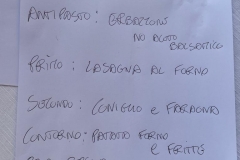 ANTIPASTO: ERBAZZONI
NO ACETO
BALSAMICO
PRIMO: LASAGNA AL FORNO
SECONDO: CONIGLIO E FARAONA
CONTORNO: PATATE FORNO
E FRITTE